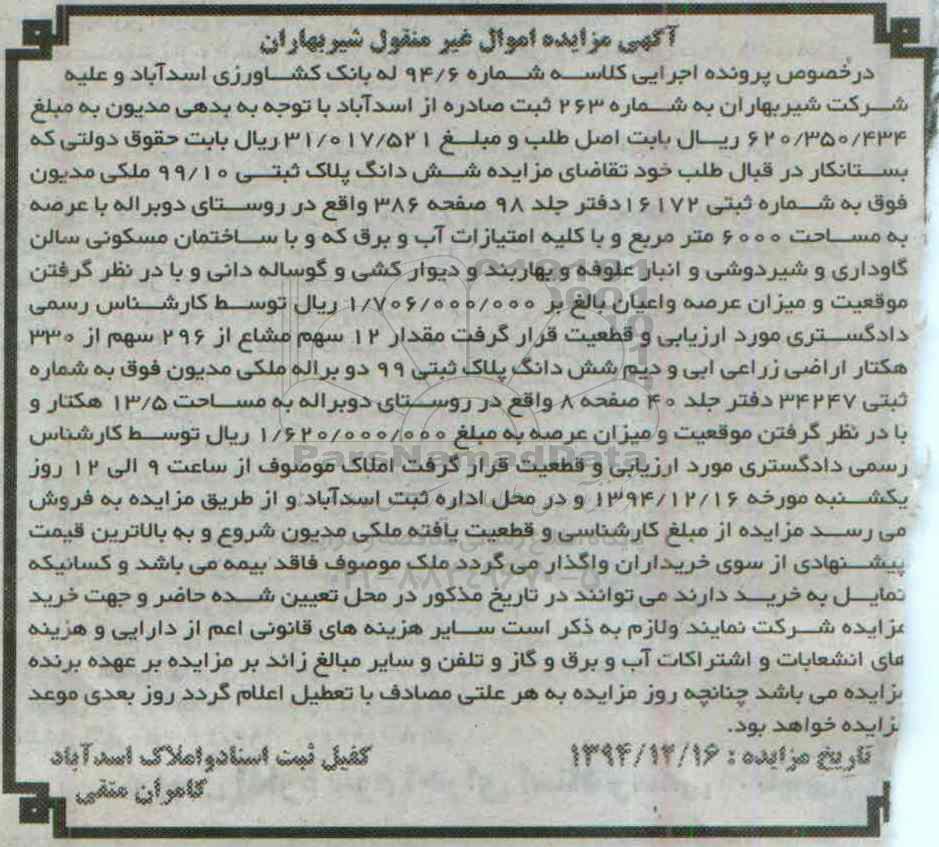 آگهی مزایده اموال غیر منقول شیربهاران
درخصوص پرونده اجرایی کلاسه شماره ۹۴/۶ له بانک کشاورزی اسدآباد و علیه
شرکت شیربهاران به شماره ۲۶۳ ثبت صادره از اسدآباد با توجه به بدهی مدیون به مبلغ
۶۲۰/۳۵۰/۴۳۴ ریال بابت اصل طلب و مبلغ ۳۱/۰۱۷/۵۲۱ ریال بابت حقوق دولتی که
بستانکار در قبال طلب خود تقاضای مزایده شش دانگ پلاک ثبتی ۹۹/۱۰ ملکی مدیون
فوق به شماره ثبتی ۱۶۱۷۲دفتر جلد ۹۸ صفحه ۳۸۶ واقع در روستای دوبراله با عرصه
به مساحت ۶۰۰۰ متر مربع و با کلیه امتیازات آب و برق که و با ساختمان مسکونی سالن
گاوداری و شیردوشی و انبار علوفه و بهاربند و دیوار کشی و گوساله دانی و با در نظر گرفتن
موقعیت و میزان عرصه واعیان بالغ بر ۱/۷۰۶/۰۰۰/۰۰۰ ریال توسط کارشناس رسمی
دادگستری مورد ارزیابی و قطعیت قرار گرفت مقدار ۱۲ سهم مشاع از ۲۹۶ سهم از ۳۳۰
هکتار اراضی زراعی ابی و دیم شش دانگ پلاک ثبتی ۹۹ دو براله ملکی مدیون فوق به شماره
ثبتی ۳۴۲۴۷ دفتر جلد ۴۰ صفحه ۸ واقع در روستای دوبراله به مساحت ۱۳/۵ هکتار و
با در نظر گرفتن موقعیت و میزان عرصه به مبلغ ۱/۶۲۰/۰۰۰/۰۰۰ ریال توسط کارشناس
رسمی دادگستری مورد ارزیابی و قطعیت قرار گرفت املاک موصوف از ساعت ۹ الی ۱۲ روز
یکشنبه مورخه ۱۳۹۴/۱۲/۱۶ و در محل اداره ثبت اسدآباد و از طریق مزایده به فروش
می رسد مزایده از مبلغ کارشناسی و قطعیت یافته ملکی مدیون شروع و به بالاترین قیمت
پیشنهادی از سوی خریداران واگذار می گردد ملک موصوف فاقد بیمه می باشد و کسانیکه
تمایل به خرید دارند می توانند در تاریخ مذکور در محل تعیین شده حاضر و جهت خرید
مزایده شرکت نمایند ولازم به ذکر است سایر هزینه های قانونی اعم از دارایی و هزینه
های انشعابات و اشتراکات آب و برق و گاز و تلفن و سایر مبالغ زائد بر مزایده بر عهده برنده
مزایده می باشد چنانچه روز مزایده به هر علتی مصادف با تعطیل اعلام گردد روز بعدی موعد
مزایده خواهد بود.
تاریخ مزایده : ۱۳۹۴/۱۲/۱۶
کفیل ثبت اسنادواملاک اسدآباد
کامران متقی
ParsNamadData